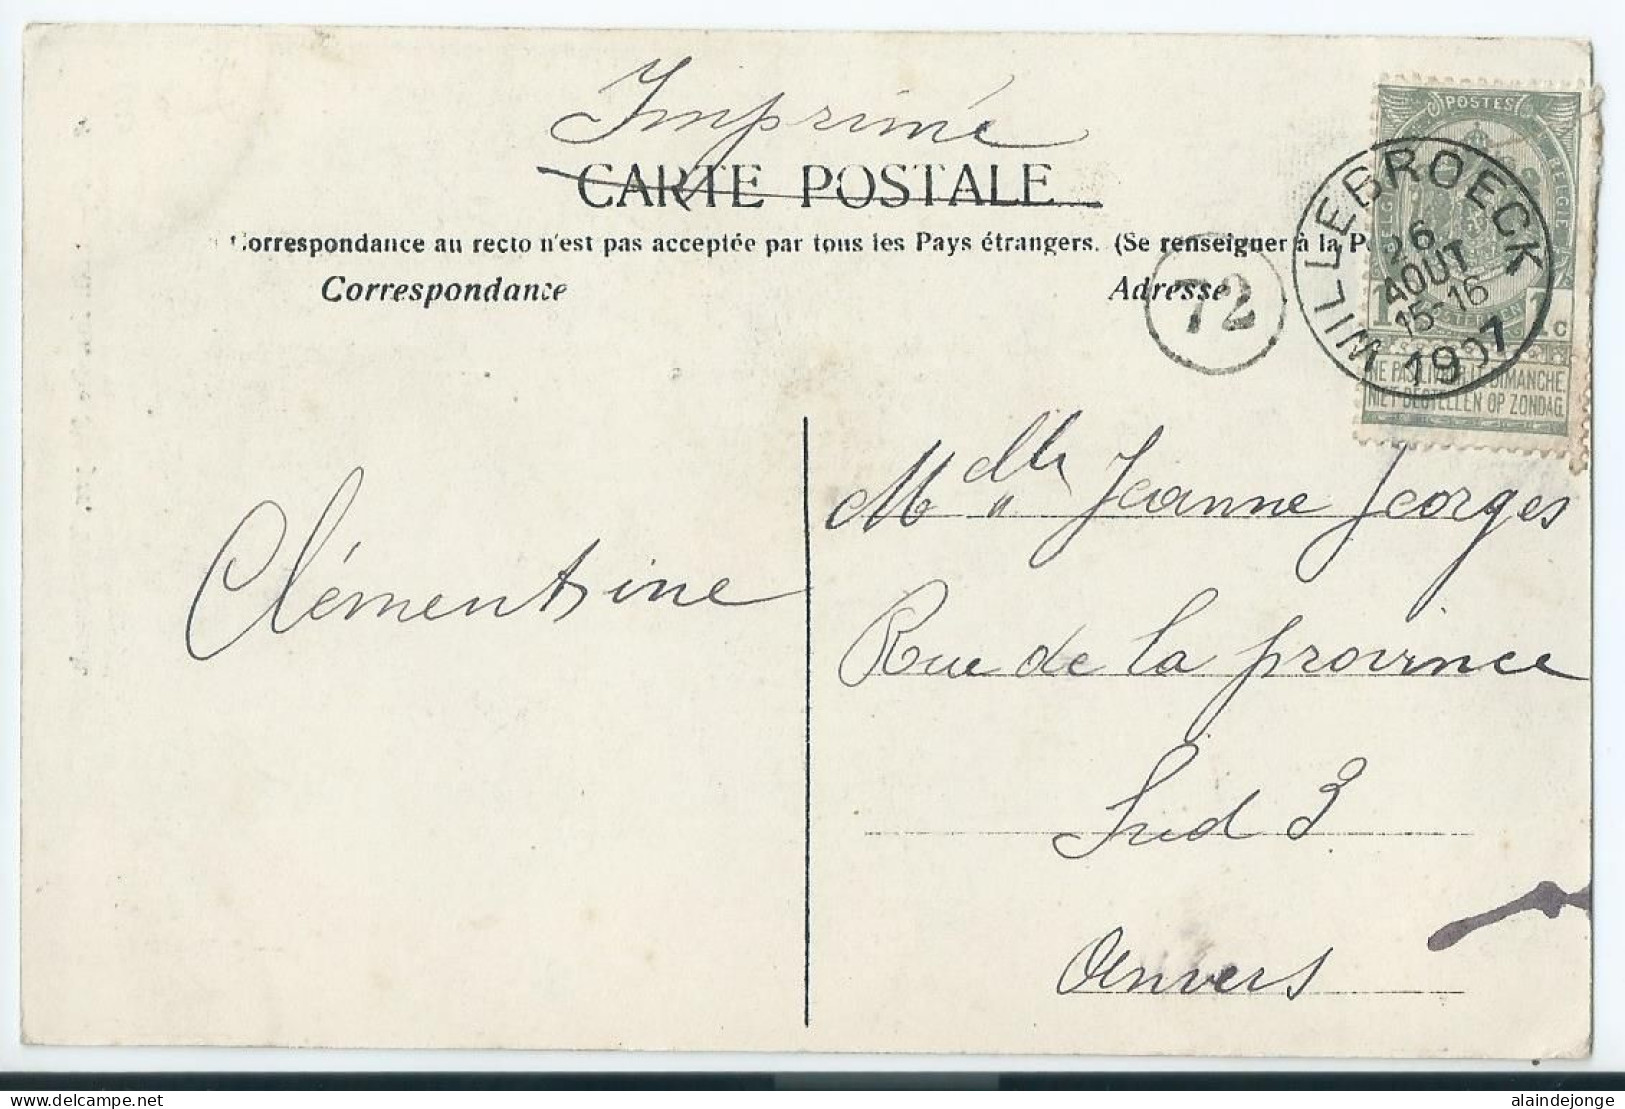 Imprimé
CARTE POSTALE
Correspondance au recto n'est pas acceptée par tous les Pays étrangers. (Se renseigner à la
Correspondance
Adresse
72
POSTES
BELGIE
WILLEBROECK
26
AOUT
15-16
1907
1c
NE PAS LIVRER LE DIMANCHE
NIET BESTELLEN OP ZONDAG
Mdlle Jeanne Georges
Clémentine
Rue de la province
Sud 3
Anvers
delcampe.net
alaindejonge